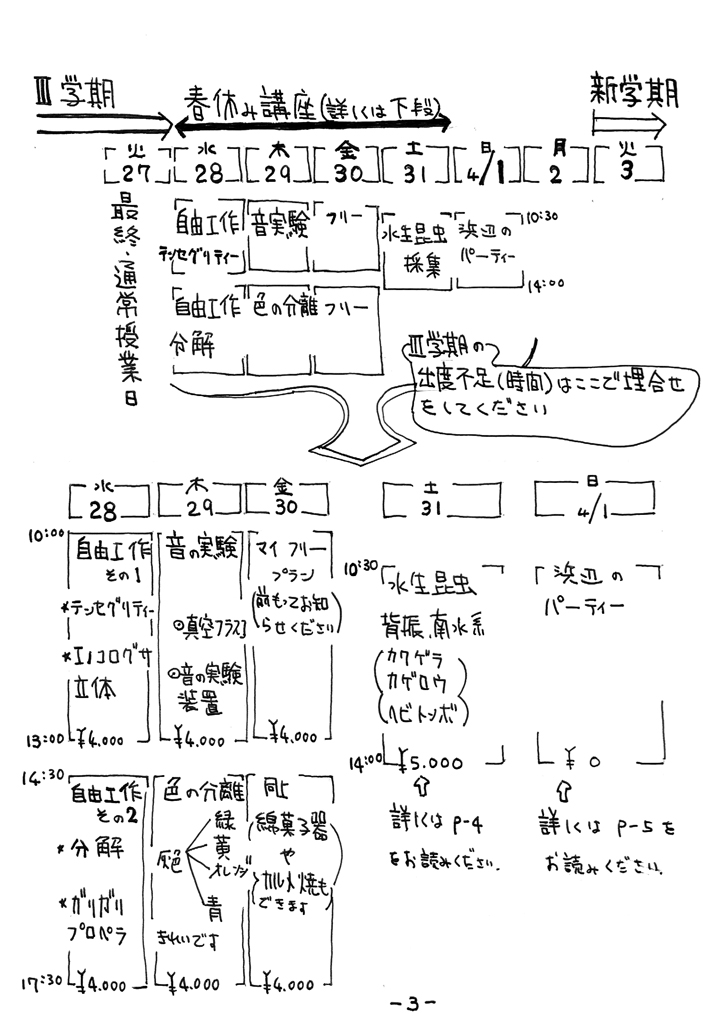 Ⅲ学期
春休み講座(詳しくは下段)
新学期
火 水 木 金 土 日 月 火
27 28 29 30 31 4/1 2 3
最終・通常授業日
自由工作 音実験 フリー
テンセグリティー
水生昆虫
採集
浜辺の
パーティー
10:30
14:00
自由工作 色の分離 フリー
分解
Ⅲ学期の
出度不足(時間)はここで埋合せ
をしてください
水 木 金 土 日
28 29 30 31 4/1
10:00
自由工作
その1
*テンセグリティー
*エノコログサ
立体
13:00 ¥4.000
音の実験
⊙真空フラスコ
⊙音の実験
装置
¥4.000
マイ フリー
プラン
(前もってお知
らせください)
¥4.000
10:30
水生昆虫
背振、南水系
(カワゲラ
カゲロウ
ヘビトンボ)
14:00 ¥5.000
詳しくは P-4
をお読みください.
浜辺の
パーティー
¥ 0
詳しくは P-5を
お読みください.
14:30
自由工作
その2
*分解
*ガリガリ
プロペラ
17:30 ¥4.000
色の分離
灰色
緑
黄
オレンジ
青
きれいです
¥4.000
同上
(綿菓子器
や
カルメ焼も
できます)
¥4.000
-3-